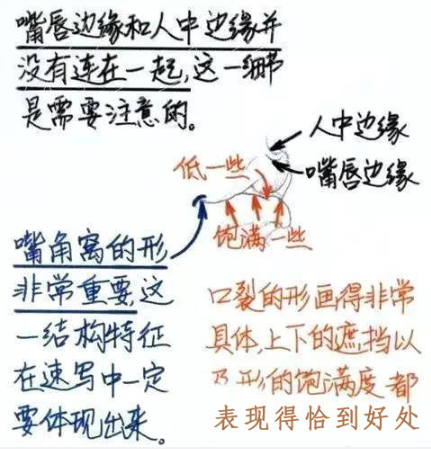 嘴唇边缘和人中边缘并
没有连在一起，这一细节
是需要注意的。
人中边缘
嘴唇边缘
低一些
饱满一些
嘴角窝的形
非常重要，这
一结构特征
在速写中一定
要体现出来。
口裂的形画得非常
具体，上下的遮挡以
及形的饱满度都
表现得恰到好处